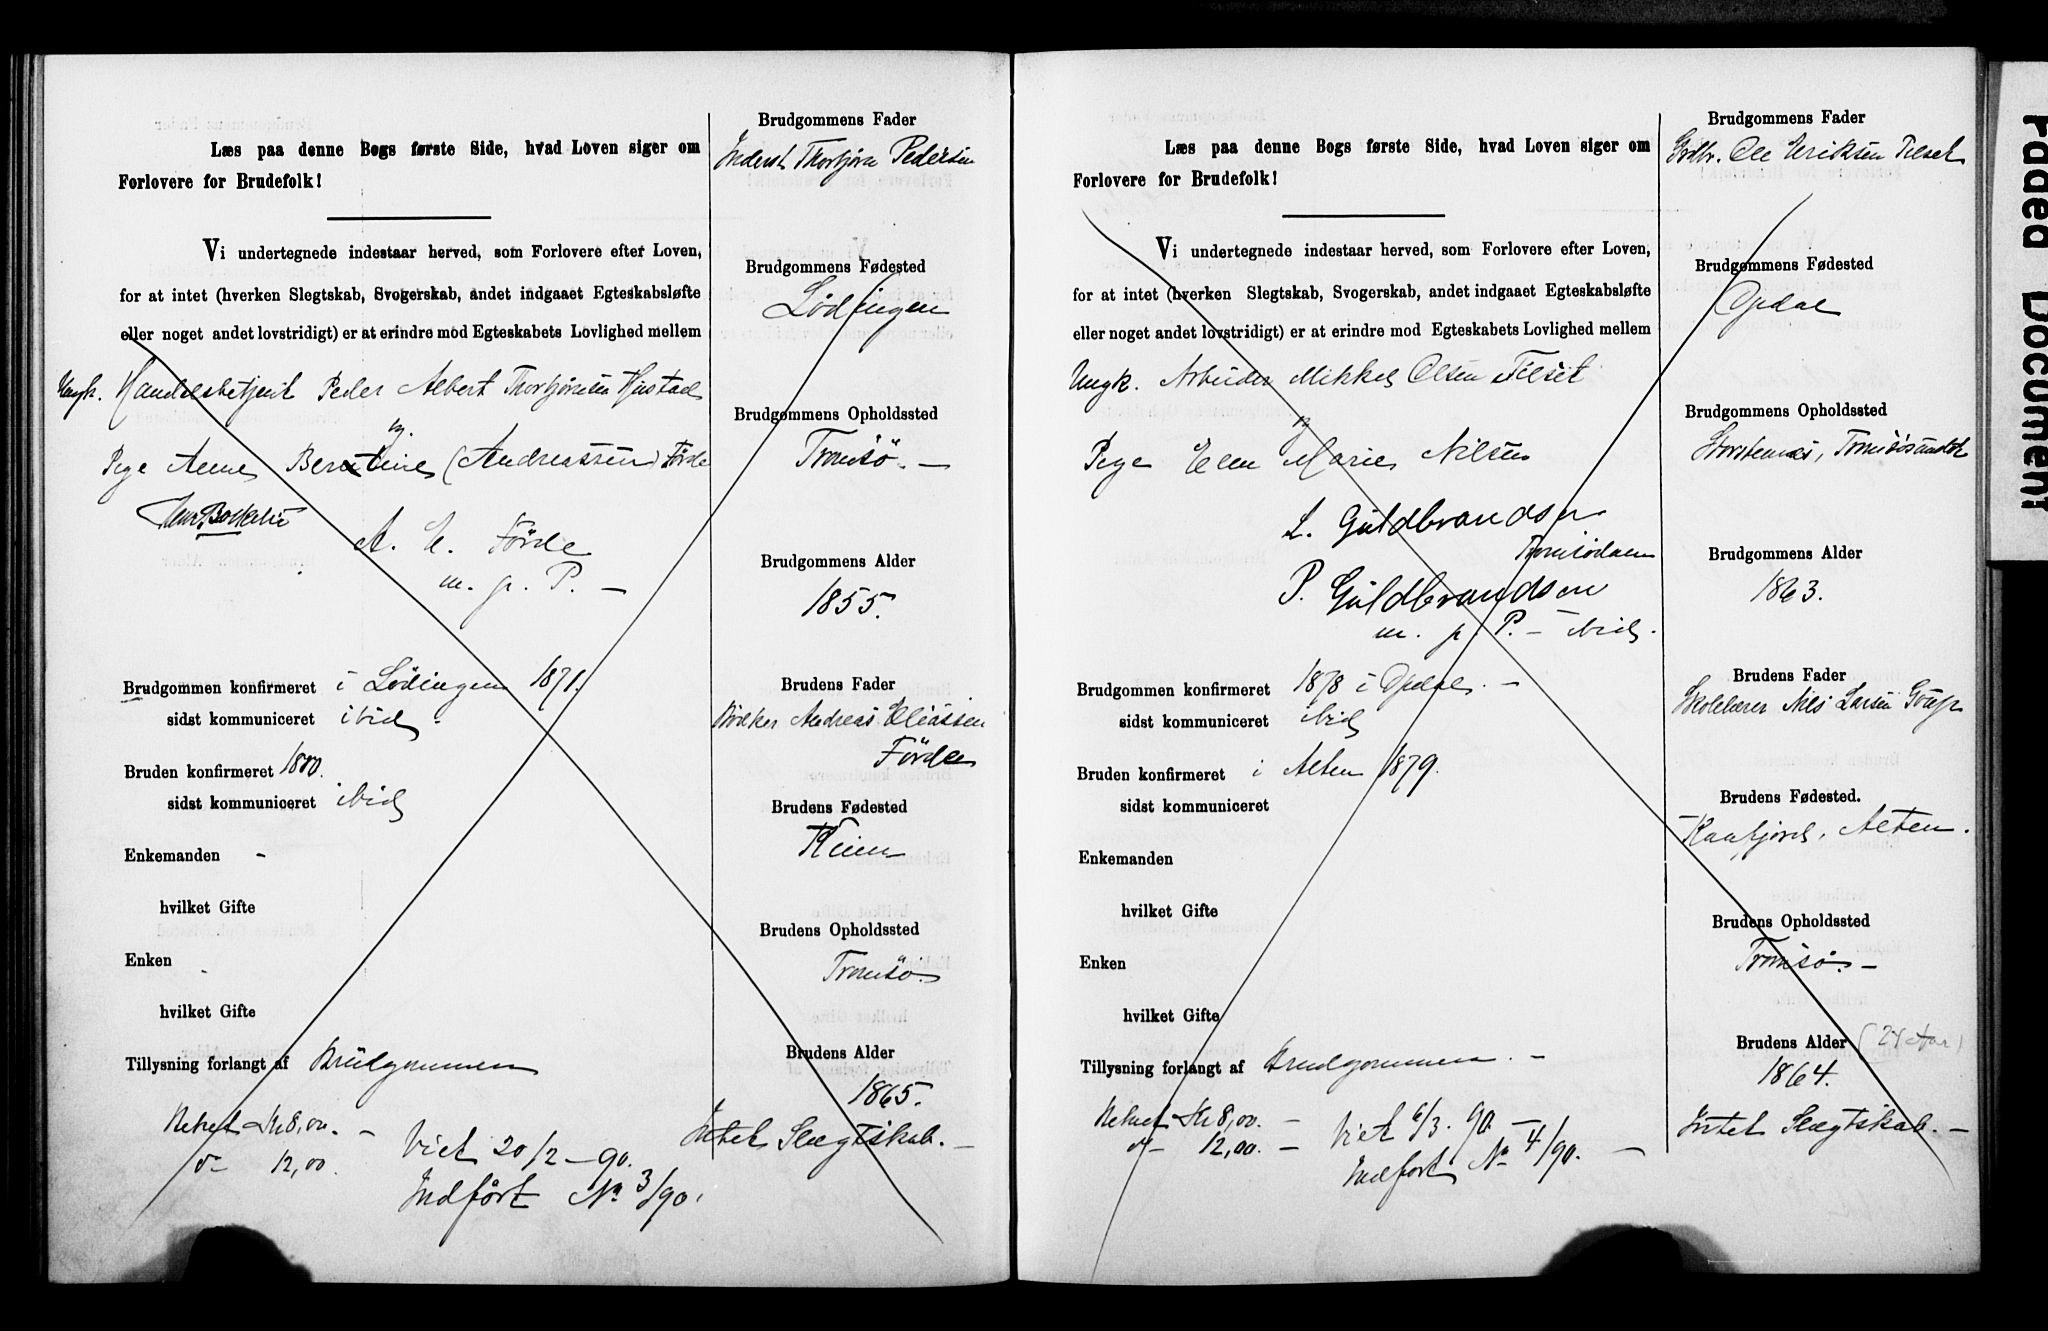 Læs paa denne Bogs første Side, hvad Loven siger om
Forlovere for Brudefolk!
Vi undertegnede indestaar herved, som Forlovere efter Loven,
for at intet (hverken Slegtskab, Svogerskab, andet indgaaet Egteskabsløfte
eller noget andet lovstridigt) er at erindre mod Egteskabets Lovlighed mellem
Ungk. Handelsbetjent Peder Albert Thorbjörnsen Hustad
og
Pige Anne Berntine (Andreassen) Förde
A. E. Förde
m. p. P. —
Brudgommen konfirmeret i Lödingen 1871.
sidst kommuniceret ibid.
Bruden konfirmeret 1880.
sidst kommuniceret ibid
Enkemanden -
hvilket Gifte
Enken -
hvilket Gifte
Tillysning forlangt af Brudgommen
Betalt Kr 8,00. —
do 12,00.
Viet 20/2 - 90.
Indført No 3/90.
Brudgommens Fader
Inderst Thorbjörn Pedersen
Brudgommens Fødested
Lödingen
Brudgommens Opholdssted
Tromsö. —
Brudgommens Alder
1855.
Brudens Fader
Andreas Eliassen
Förde
Brudens Fødested
Brudens Opholdssted
Tromsö.
Brudens Alder
1865.
Intet Slegtskab. —
Læs paa denne Bogs første Side, hvad Loven siger om
Forlovere for Brudefolk!
Vi undertegnede indestaar herved, som Forlovere efter Loven,
for at intet (hverken Slegtskab, Svogerskab, andet indgaaet Egteskabsløfte
eller noget andet lovstridigt) er at erindre mod Egteskabets Lovlighed mellem
Ungk. Arbeider Mikkel Olsen Filset
og
Pige Elen Marie Nilsen
L. Guldbrandsen
Tromsdalen
P. Guldbrandsen
m. p. P. — ibid.
Brudgommen konfirmeret 1878 i Opdal. —
sidst kommuniceret ibid
Bruden konfirmeret i Alten 1879.
sidst kommuniceret
Enkemanden
hvilket Gifte
Enken
hvilket Gifte
Tillysning forlangt af Brudgommen. —
Betalt Kr 8,00. —
do 12,00. —
Viet 6/3. 90. —
Indfört No 4/90. —
Brudgommens Fader
Grdbr. Ole Eriksen Filset
Brudgommens Fødested
Opdal
Brudgommens Opholdssted
Storstennes, Tromsösundet
Brudgommens Alder
1863.
Brudens Fader
Skolelærer Nils Larsen
Brudens Fødested.
Kaafjord, Alten.
Brudens Opholdssted
Tromsö. —
Brudens Alder (24 Aar)
1864.
Intet Slegtskab. —
Faded Document